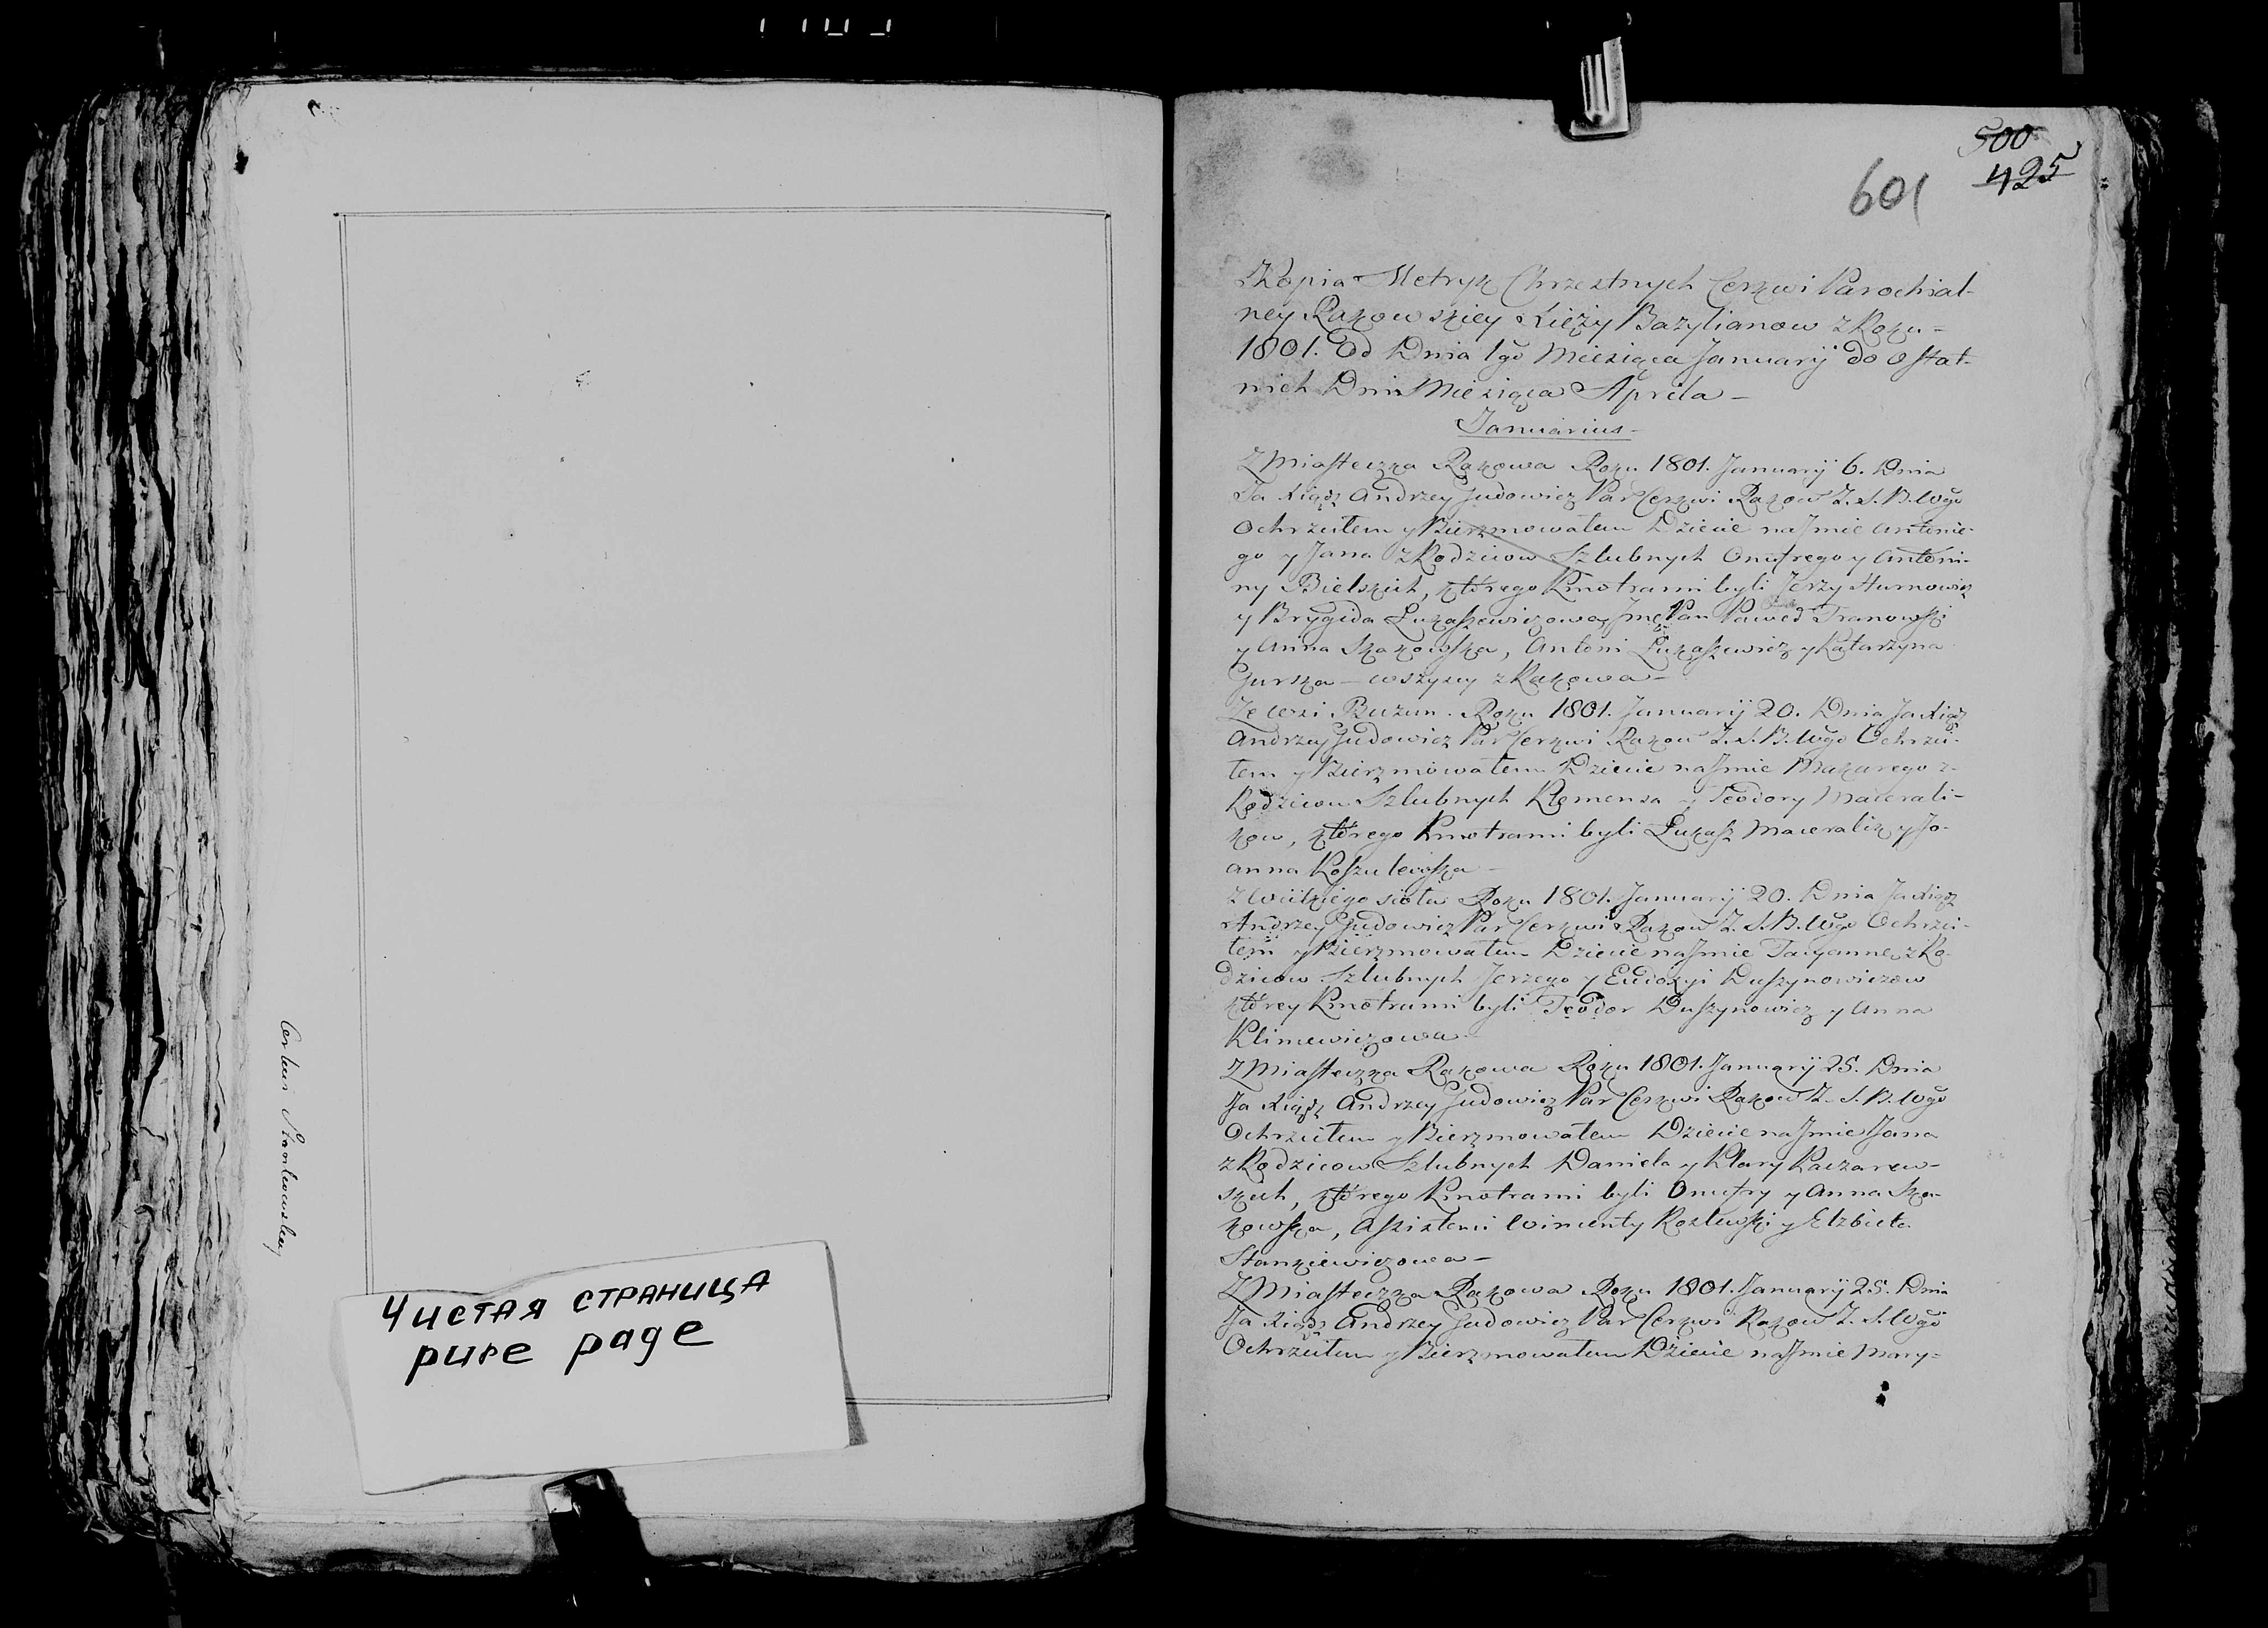 Чистая страница
pure page
500
425
601
Kopia Metryk Chrzestnych Cerkwi Parochial-
ney Rakowskiey Xięży Bazylianow z Roku -
1801. Od Dnia 1go Miesiąca January do ostat-
nich Dni Miesiąca Aprila -
Januarius -
Z Miasteczka Rakowa Roku 1801. January 6. Dnia
Ja Xiądz Andrzey Judowicz Par Cerkwi Rakow Z. S. B. Wgo
Ochrzciłem y Bierzmowałem Dziecie na Jmie Antonie-
go y Jana z Rodzicow Szlubnych Onufrego y Antoni-
ny Bielskich, ktorego Kmotrami byli Jerzy Humowicz
y Brygida Łukaszewiczowa, Pan Paweł Tranowski
y Anna Skakowska, Antoni Łukaszewicz y Katarzyna
Gurska - wszyscy z Rakowa -
Ze Wsi Buzun. Roku 1801. January 20. Dnia Ja Xiądz
Andrzey Judowicz Par Cerkwi Rakow Z. S. B. Wgo Ochrzci-
łem y Bierzmowałem Dziecie na Jmie Makarego z -
Rodzicow Szlubnych Klemensa y Teodory Macerali-
kow, ktorego Kmotrami byli Łukasz Maceralik y Jo-
anna Koszulewska -
Z Wielkiego sioła Roku 1801. January 20. Dnia Ja Xiądz
Andrzey Judowicz Par Cerkwi Rakow Z. S. B. Wgo Ochrzci-
łem y Bierzmowałem Dziecie na Jmie Tacyanne z Ro-
dzicow Szlubnych Jerzego y Eudokyi Duszynowiczow
ktorey Kmotrami byli Teodor Duszynowicz y Anna
Klimewiczowa -
Z Miasteczka Rakowa Roku 1801. January 25. Dnia
Ja Xiądz Andrzey Judowicz Par Cerkwi Rakow Z. S. B. Wgo
Ochrzciłem y Bierzmowałem Dziecie na Jmie Jana
z Rodzicow Szlubnych Daniela y Klary Kaczarew-
skich, ktorego Kmotrami byli Onufry y Anna Ska-
kowska, Assistenci Wincenty Kozlewski y Elzbieta
Stankiewiczowa -
Z Miasteczka Rakowa Roku 1801. January 25. Dnia
Ja Xiądz Andrzey Judowicz Par Cerkwi Rakow Z. S. Wgo
Ochrzciłem y Bierzmowałem Dziecie na Jmie Mary-